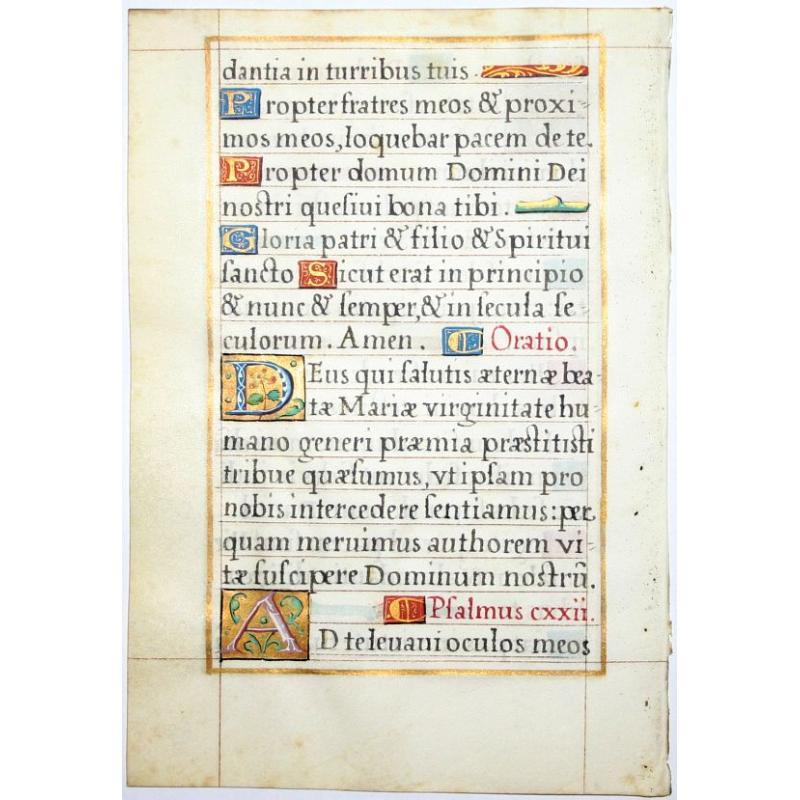 dantia in turribus tuis.
Propter fratres meos & proxi-
mos meos, loquebar pacem de te.
Propter domum Domini Dei
noſtri queſiui bona tibi.
Gloria patri & filio & Spiritui
ſancto Sicut erat in principio
& nunc & ſemper, & in ſecula ſe
culorum. Amen. Oratio.
DEus qui ſalutis æternæ bea-
tæ Mariæ virginitate hu
mano generi præmia præſtitiſti
tribue quæſumus, vt ipſam pro
nobis intercedere ſentiamus: per
quam meruimus authorem vi-
tæ ſuſcipere Dominum noſtrū.
Pſalmus cxxii.
AD te leuaui oculos meos